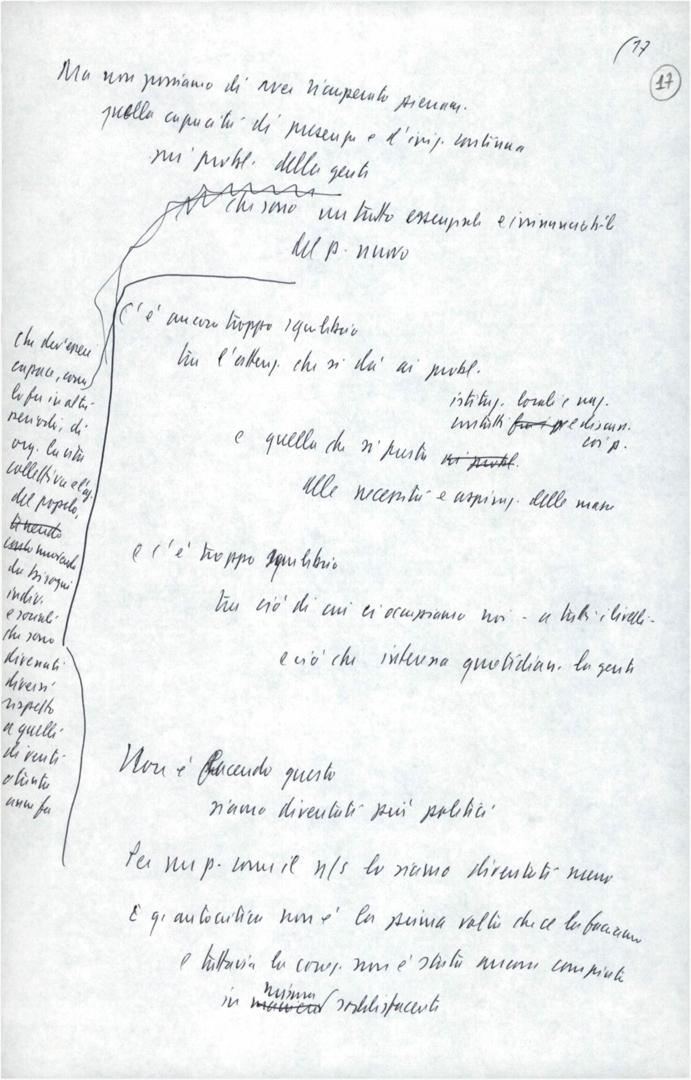 (17
17
Ma non possiamo di aver recuperato pienam.
quella capacità di presenza e d'iniz. continua
sui probl. della gente
che sono un tratto essenziale e irrinunciabile
del p. nuovo
C'è ancora troppo squilibrio
tra l'attenz. che si dà ai probl.
istituz. locali e naz.
contatti e discuss.
coi p.
e quella che si presta ai probl.
alle necessità e aspiraz. delle masse
e c'è troppo squilibrio
tra ciò di cui ci occupiamo noi - a tutti i livelli -
e ciò che interessa quotidian. la gente
che dev'essere
capace, come
lo fu in altri
periodi, di
org. la vita
collettiva e l'az.
del popolo,
muovendo
da bisogni
indiv.
e sociali
che sono
divenuti
diversi
rispetto
a quelli
di venti
o trenta
anni fa
Non è facendo questo
siamo diventati più politici
Per un p. come il n/s lo siamo diventati meno
E q. autocritica non è la prima volta che ce la facciamo
e tuttavia la corr. non è stata ancora compiuta
misura
in maniera soddisfacente